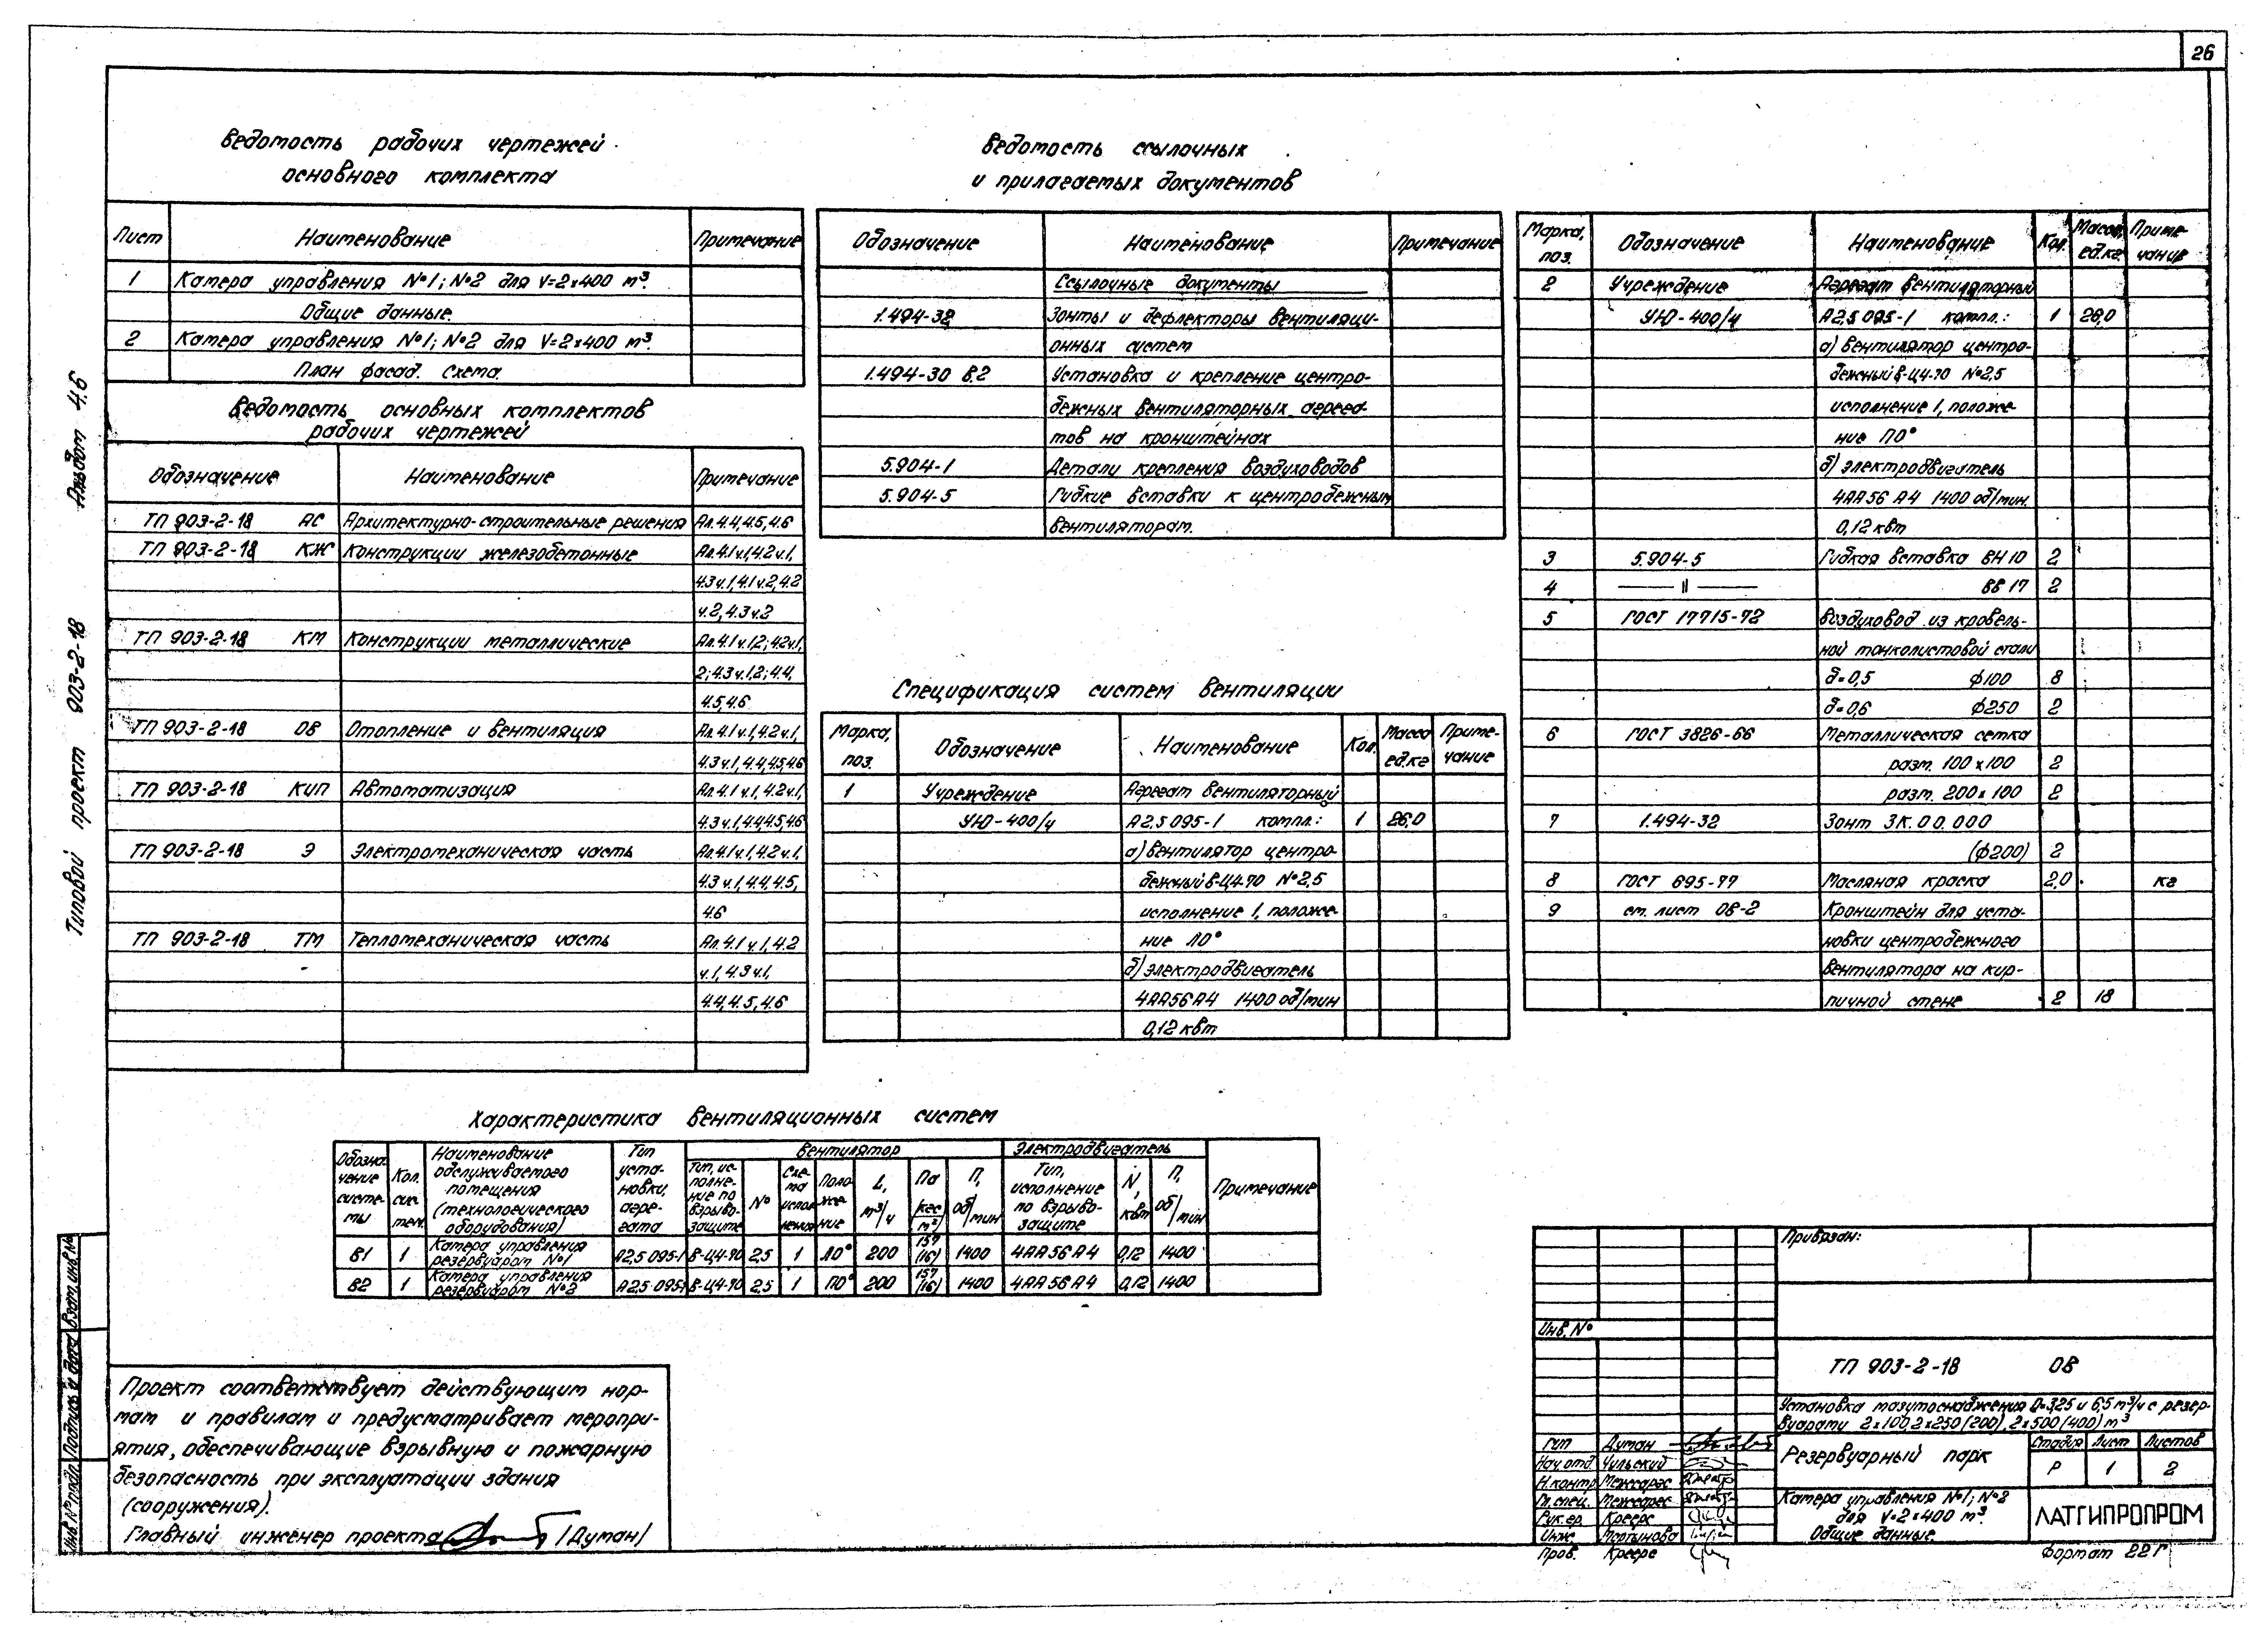 26
Ведомость рабочих чертежей
основного комплекта
Лист Наименование Примечание
1 Камера управления №1; №2 для V=2×400 м³.
Общие данные.
2 Камера управления №1; №2 для V=2×400 м³.
План фасад. Схема.
Ведомость основных комплектов
рабочих чертежей
Обозначение Наименование Примечание
ТП 903-2-18 АС Архитектурно-строительные решения Ал.4.4,4.5,4.6
ТП 903-2-18 КЖ Конструкции железобетонные Ал.4.1 ч.1,4.2 ч.1,
4.3 ч.1,4.1 ч.2,4.2
ч.2,4.3 ч.2
ТП 903-2-18 КМ Конструкции металлические Ал.4.1 ч.1,2; 4.2 ч.1,
2; 4.3 ч.1,2; 4.4,
4.5,4.6
ТП 903-2-18 ОВ Отопление и вентиляция Ал.4.1 ч.1,4.2 ч.1,
4.3 ч.1,4.4,4.5,4.6
ТП 903-2-18 КИП Автоматизация Ал.4.1 ч.1,4.2 ч.1,
4.3 ч.1,4.4,4.5,4.6
ТП 903-2-18 Э Электромеханическая часть Ал.4.1 ч.1,4.2 ч.1,
4.3 ч.1,4.4,4.5,
4.6
ТП 903-2-18 ТМ Тепломеханическая часть Ал.4.1 ч.1,4.2
ч.1,4.3 ч.1,
4.4,4.5,4.6
Ведомость ссылочных
и прилагаемых документов
Обозначение Наименование Примечание
Ссылочные документы
1.494-32 Зонты и дефлекторы вентиляци-
онных систем
1.494-30 В.2 Установка и крепление центро-
бежных вентиляторных агрега-
тов на кронштейнах
5.904-1 Детали крепления воздуховодов
5.904-5 Гибкие вставки к центробежным
вентиляторам.
Спецификация систем вентиляции
Марка, поз. Обозначение Наименование Кол. Масса ед.кг Приме-чание
1 Учреждение Агрегат вентиляторный
УЮ-400/4 А2,5 095-1 компл.: 1 26,0
а) вентилятор центро-
бежный В-Ц4-70 №2,5
исполнение 1, положе-
ние Л0°
б) электродвигатель
4АА56А4 1400 об/мин
0,12 квт
Марка, поз. Обозначение Наименование Кол. Масса, ед.кг. Приме-чание
2 Учреждение Агрегат вентиляторный
УЮ-400/4 А2,5 095-1 компл.: 1 26,0
а) вентилятор центро-
бежный В-Ц4-70 №2,5
исполнение 1, положе-
ние П0°
б) электродвигатель
4АА56 А4 1400 об/мин.
0,12 квт
3 5.904-5 Гибкая вставка ВН 10 2
4 —— 〃 —— ВВ 17 2
5 ГОСТ 17715-72 Воздуховод из кровель-
ной тонколистовой стали
δ=0,5 ф100 8
δ=0,6 ф250 2
6 ГОСТ 3826-66 Металлическая сетка
разм. 100×100 2
разм. 200×100 2
7 1.494-32 Зонт ЗК.00.000
(ф200) 2
8 ГОСТ 695-77 Масляная краска 2,0 кг
9 см. лист ОВ-2 Кронштейн для уста-
новки центробежного
вентилятора на кир-
пичной стене 2 18
Характеристика вентиляционных систем
Обозна-чение систе-мы Кол. сис-тем. Наименование обслуживаемого помещения (технологического оборудования) Тип уста-новки, агре-гата Вентилятор Электродвигатель Примечание
Тип, ис-полне-ние по взрыво-защите № Схе-ма испол-нения Поло-же-ние L, м³/ч Па (кгс/м²) П, об/мин Тип, исполнение по взрыво-защите N, квт П, об/мин
В1 1 Камера управления резервуаром №1 А2,5 095-1 В-Ц4-70 2,5 1 Л0° 200 157 (16) 1400 4АА56А4 0,12 1400
В2 1 Камера управления резервуаром №2 А2,5 095-1 В-Ц4-70 2,5 1 П0° 200 157 (16) 1400 4АА56А4 0,12 1400
Проект соответствует действующим нор-
мам и правилам и предусматривает меропри-
ятия, обеспечивающие взрывную и пожарную
безопасность при эксплуатации здания
(сооружения).
Главный инженер проекта /Думан/
Привязан:
Инв.№
ТП 903-2-18 ОВ
Установка мазутоснабжения Q=3,25 и 6,5 м³/ч с резер-
вуарами 2×100, 2×250(200), 2×500(400) м³
ГИП Думан
Нач.отд. Чульский
Н.контр. Межсаргс
Гл.спец. Межсаргс
Рук.гр. Креерс
Инж. Мартынова
Пров. Креерс
Резервуарный парк
Стадия Лист Листов
Р 1 2
Камера управления №1; №2
для V=2×400 м³.
Общие данные.
ЛАТГИПРОПРОМ
Формат 22Г
Типовой проект 903-2-18 Альбом 4.6
Инв.№ подл. Подпись и дата Взам.инв.№